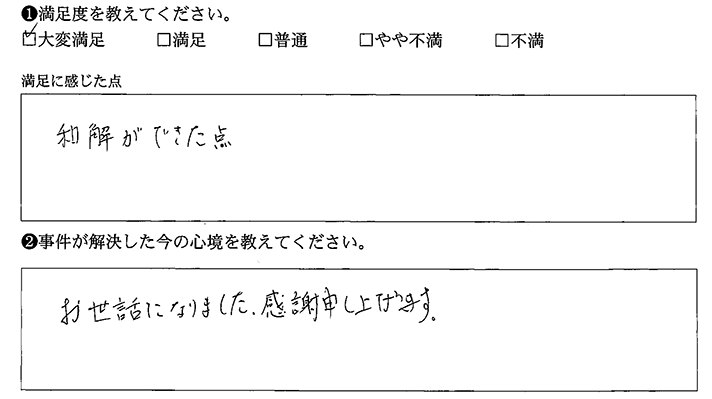 ❶満足度を教えてください。
☑大変満足 □満足 □普通 □やや不満 □不満
満足に感じた点
和解ができた点
❷事件が解決した今の心境を教えてください。
お世話になりました、感謝申し上げます。